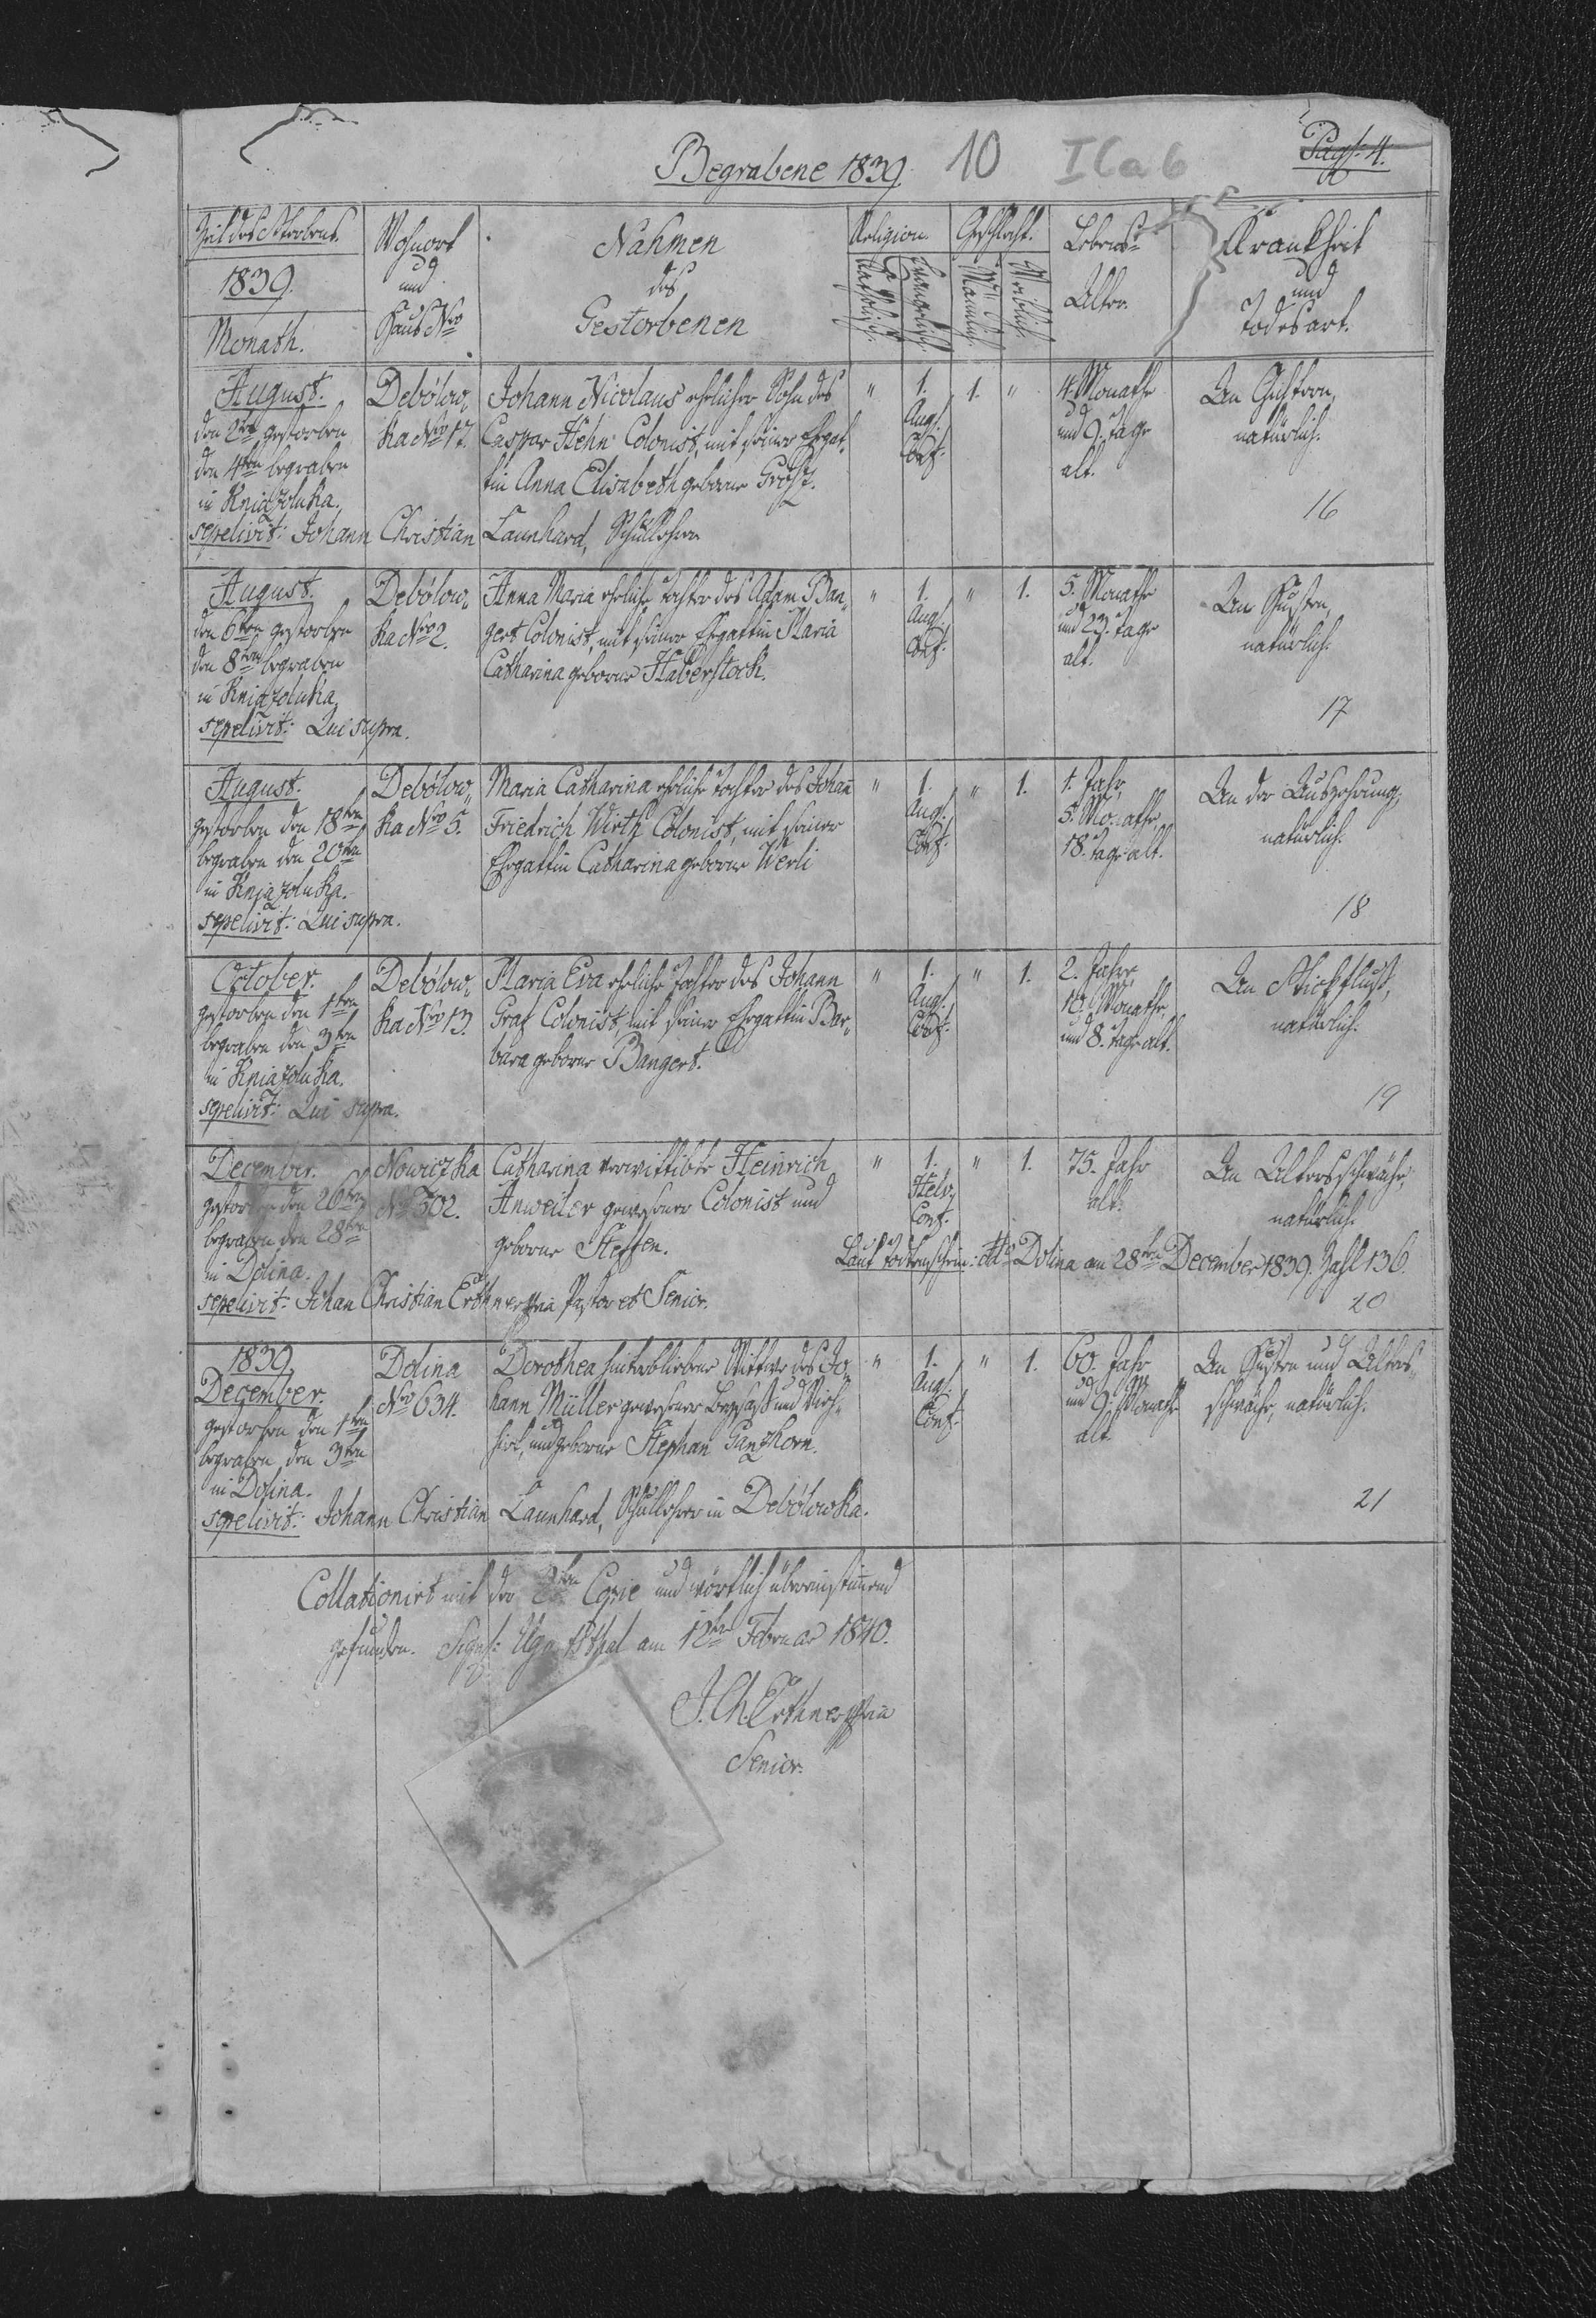 Begrabene 1839.
10
I C a 6
Pag: 4.
Zeit des Sterbens.
1839.
Monath.
Wohnort
und
Haus Nro
Nahmen
des
Gestorbenen
Religion.
Katholisch.
Evangelisch.
Geschlecht.
Männlich.
Weiblich.
Lebens-
Alter.
Krankheit
und
Todesart.
August.
den 2ten gestorben
den 4ten begraben
in Kniazoluka.
Debólow,
ka Nro 17.
Johann Nicolaus ehelicher Sohn des
Caspar Hehn Colonist, mit seiner Ehegat,
tin Anna Elisabeth geborne Grosz.
" 1. 1. "
Aug.
Conf.
4. Monathe
und 9. Tage
alt.
An
natürlich.
16
sepelivit: Johann Christian Launhard, Schullehrer
August.
den 6ten gestorben
den 8ten begraben
in Kniazoluka.
Debólow,
ka Nro 2.
Anna Maria eheliche Tochter des Adam Ban,,
gert Colonist, mit seiner Ehegattin Maria
Catharina geborne Haberstock.
" 1. " 1.
Aug.
Conf.
5. Monathe
und 23. Tage
alt.
An Husten,
natürlich.
17
sepelivit: Qui supra.
August.
gestorben den 18ten
begraben den 20ten
in Kniazoluka.
Debólow,,
ka Nro 5.
Maria Catharina eheliche Tochter des Johan̄
Friedrich Wirth Colonist, mit seiner
Ehegattin Catharina geborne Werli
" 1. " 1.
Aug.
Conf.
1. Jahr,
5. Monathe,
18. Tage alt.
An der Auszehrung,
natürlich.
18
sepelivit: Qui supra.
October.
gestorben den 1ten
begraben den 3ten
in Kniazoluka.
Debólow,
ka Nro 13.
Maria Eva eheliche Tochter des Johann
Graf Colonist mit seiner Ehegattin Bar,,
bara geborne Bangert.
" 1. " 1.
Aug.
Conf.
2. Jahre,
10. Monathe,
und 8. Tage alt.
An Stickfluß,
natürlich.
19
sepelivit: Qui supra.
December.
gestorben den 26ten
begraben den 28ten
in Dolina.
Nowiczka
Nro 302.
Catharina verwittibte Heinrich
Anweiler gewesener Colonist und
geborne Steffen.
" 1. " 1.
Helv.
Conf.
75. Jahr
alt.
An Altersschwäche,
natürlich.
Laut Todtenschein: dto Dolina am 28ten December 1839. Zahl 136.
20
sepelivit: Johan Christian Erthner mpria Pastor et Senior.
1839.
December.
gestorben den 1ten
begraben den 3ten
in Dolina.
Dolina
Nro 634.
Dorothea hinterbliebene Wittwe des Jo,
hann Müller gewesener Beysaß und Vieh,,
hirt, und geborne Stephan Ganzhorn.
" 1. " 1.
Aug.
Conf.
60. Jahr
und 9. Monathe
alt.
An Husten und Alters,,
schwäche, natürlich.
21
sepelivit: Johann Christian Launhard, Schullehrer in Debólowka.
Collationirt mit der 2ten Copie und wörtlich übereinstim̄end
gefunden. Sign: Ugartsthal am 12ten Februar 1840.
J. Ch. Erthner mpria
Senior.